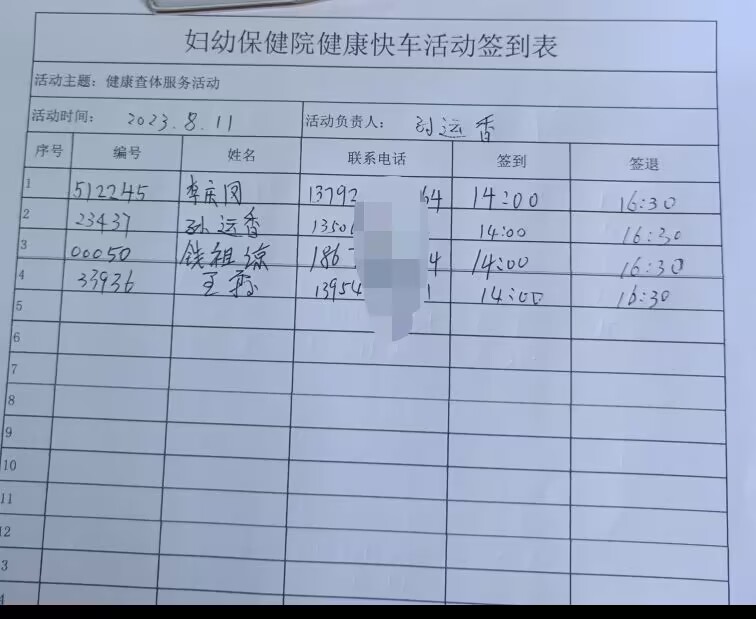 妇幼保健院健康快车活动签到表
活动主题：健康查体服务活动
活动时间： 2023.8.11 活动负责人： 孙运香
序号 编号 姓名 联系电话 签到 签退
1 512245 李庆冈 13792 64 14:00 16:30
2 23437 孙运香 1350 14:00 16:30
3 00050 钱祖琼 186 4 14:00 16:30
4 33936 王 13954 1 14:00 16:30
5
6
7
8
9
10
11
12
3
4